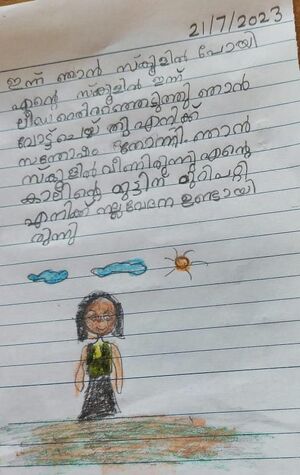 21/7/2023
ഇന്ന് ഞാൻ സ്കൂളിൽ പോയി
എന്റെ സ്കൂളിൽ ഇന്ന്
ഞാൻ
വോട്ട് ചെയ്തു എനിക്ക്
സന്തോഷം തോന്നി. ഞാൻ
സ്കൂളിൽ വീണിരുന്നു എന്റെ
കാലിന്റെ മുട്ടിന് മുറിപറ്റി
എനിക്ക് നല്ല വേദന ഉണ്ടായി
രുന്നു